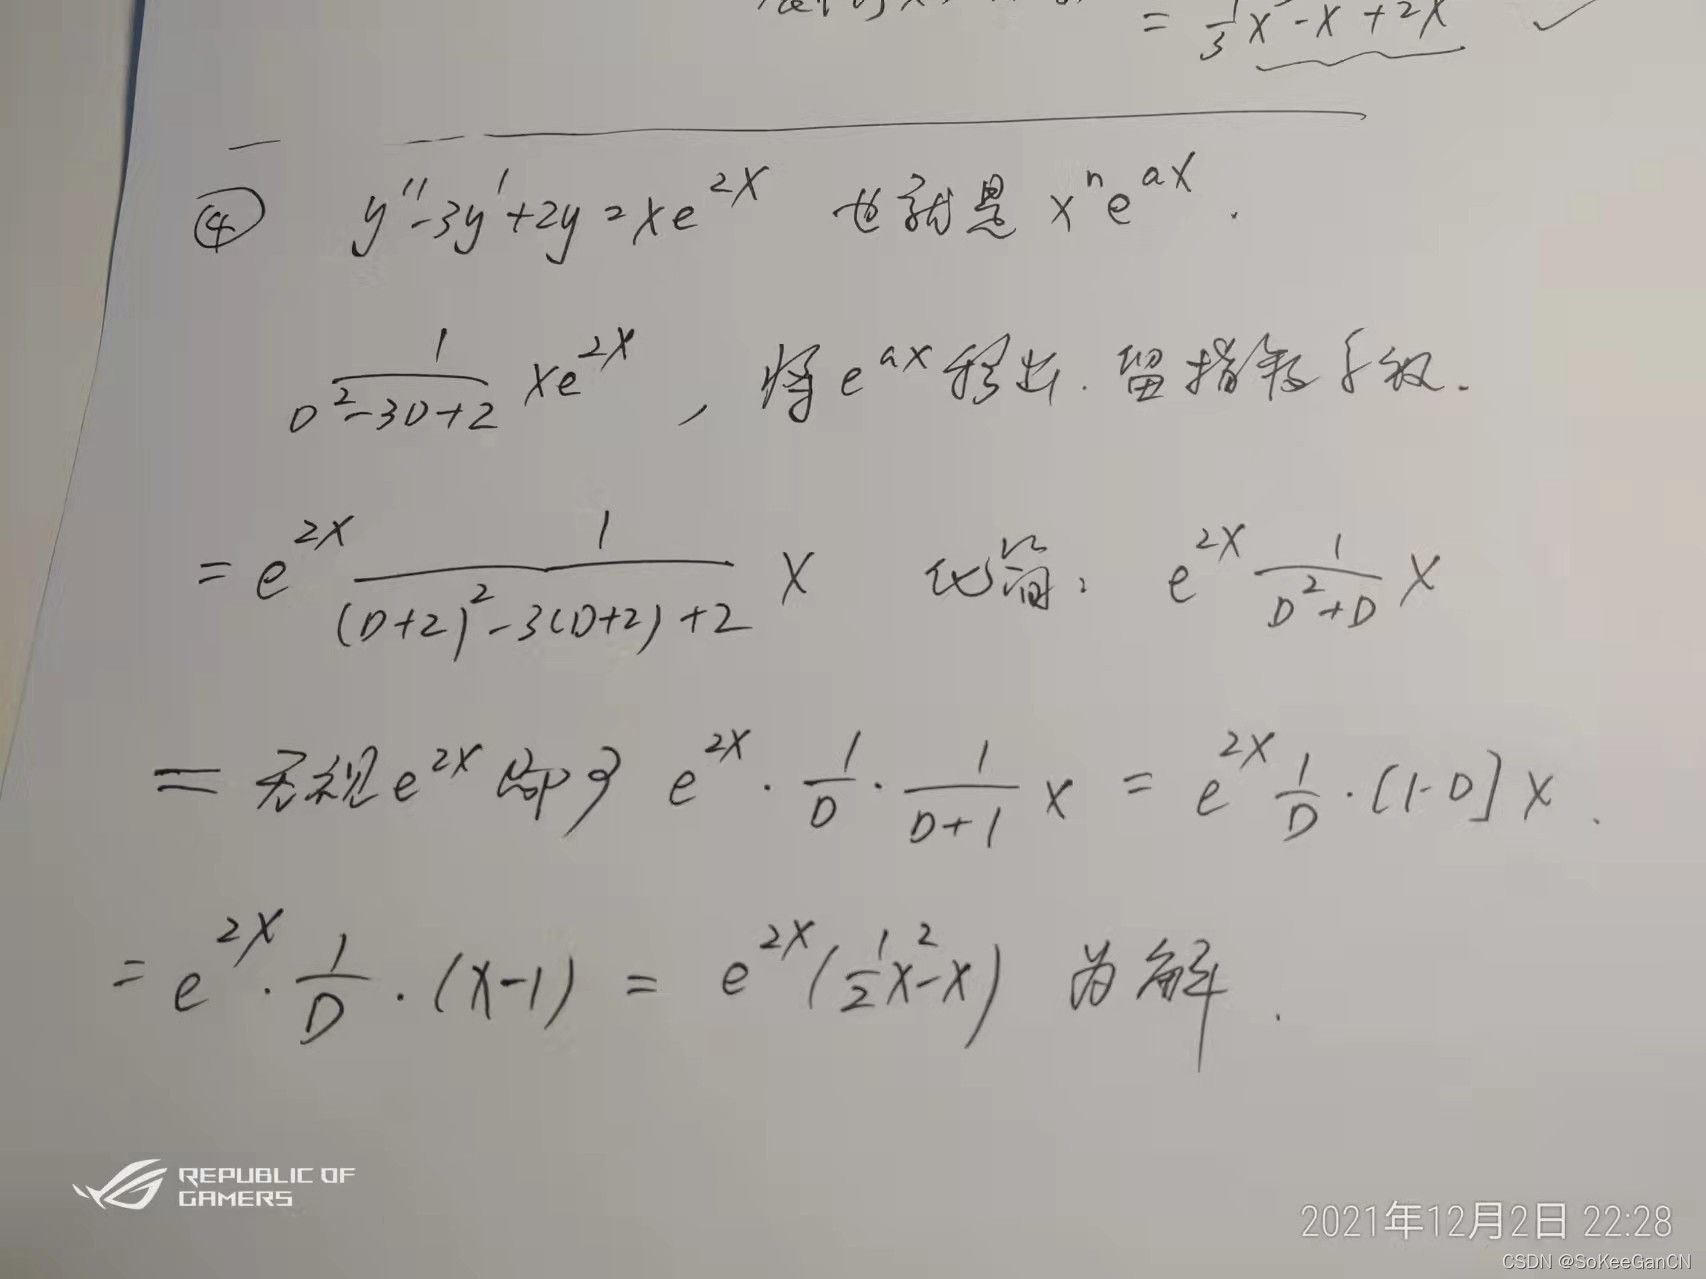 = 1/3 x - x + 2x
④ y'' - 3y' + 2y = xe^{2x} 也就是 x^n e^{ax}.
1/(D^2-3D+2) xe^{2x}, 将e^{ax}移出. 留指数系数.
= e^{2x} 1/((D+2)^2-3(D+2)+2) x 化简: e^{2x} 1/(D^2+D) x
= 无视e^{2x}部分 e^{2x} · 1/D · 1/(D+1) x = e^{2x} 1/D · [1-D] x.
= e^{2x} · 1/D · (x-1) = e^{2x}(1/2 x^2 - x) 为解.
REPUBLIC OF
GAMERS
2021年12月2日 22:28
CSDN @SoKeeGanCN